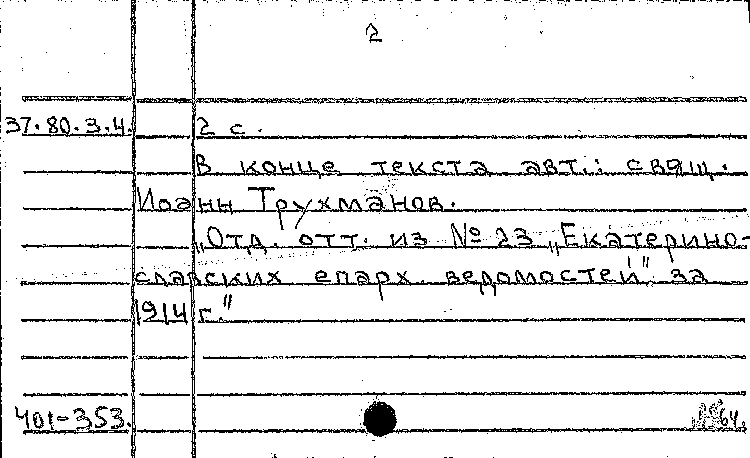 2
37.80.3.4. 2 с.
В конце текста авт.: свящ.
Иоанн Трухманов.
„Отд. отт. из № 23 „Екатерино-
славских епарх. ведомостей" за
1914 г."
401-353. 64.